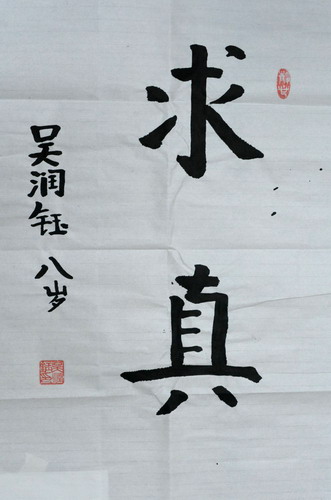 求真
吴润钰 八岁